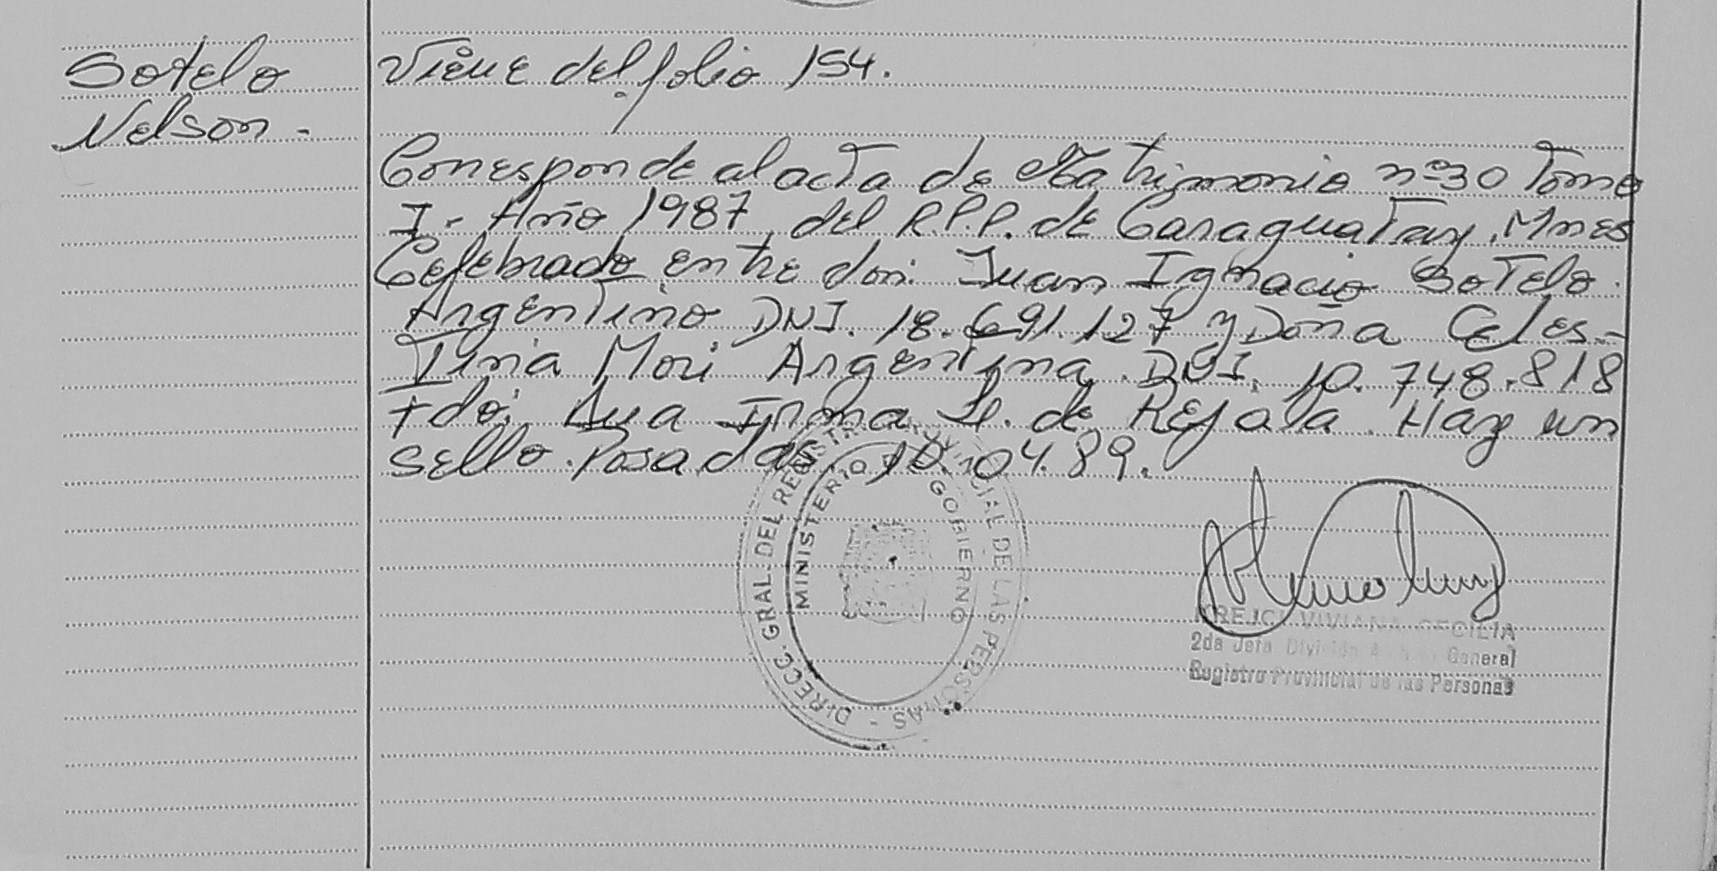 Sotelo
Nelson.-
Viene del folio 154.
Corresponde al acta de Matrimonio nº 30 Tomo
I. Año 1987 del R.P.P. de Caraguatay, Mnes
Celebrado entre don: Juan Ignacio Sotelo.
Argentino DNI. 18.691.127 y Doña Celes-
Tina Mori Argentina. DNI. 10.748.818
Fdo: Irma de Rejala. Hay un
sello. Posadas, 10.04.89.
DIRECC. GRAL. DEL REGISTRO PROVINCIAL DE LAS PERSONAS -
MINISTERIO DE GOBIERNO
VIVIANA CECILIA
2da Jefa División General
Registro Provincial de las Personas